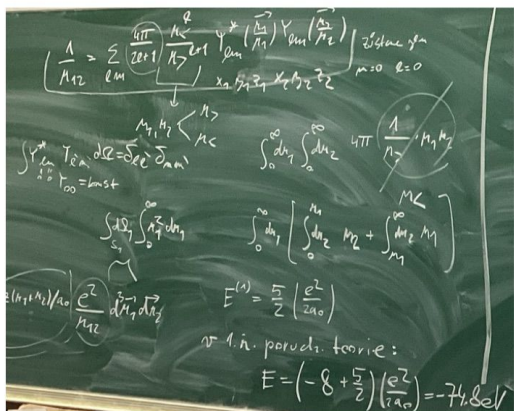 1/r₁₂ = Σ_{ℓm} 4π/(2ℓ+1) r_<^ℓ/r_>^{ℓ+1} Y*_{ℓm}(r⃗₁/r₁) Y_{ℓm}(r⃗₂/r₂)
zůstane jen
m=0 ℓ=0
x₁ y₁ z₁ x₂ y₂ z₂
r₁, r₂ < r_> r_<
∫Y*_{ℓm} Y_{ℓ'm'} dΩ = δ_{ℓℓ'} δ_{mm'}
Y₀₀ = konst
∫₀^∞ dr₁ ∫₀^∞ dr₂ 4π (1/r_>) · r₁ r₂
∫_{S₁} dΩ₁ ∫₀^∞ r₁² dr₁
∫₀^∞ dr₁ [∫₀^{r₁} dr₂ r₂ + ∫_{r₁}^∞ dr₂ r₁]
r_<
(r₁+r₂)/a₀ e²/r₁₂ d³r⃗₁ dr⃗₂
E⁽¹⁾ = 5/2 (e²/2a₀)
v 1. ř. poruch. teorie:
E = (-8 + 5/2)(e²/2a₀) = -74.8 eV